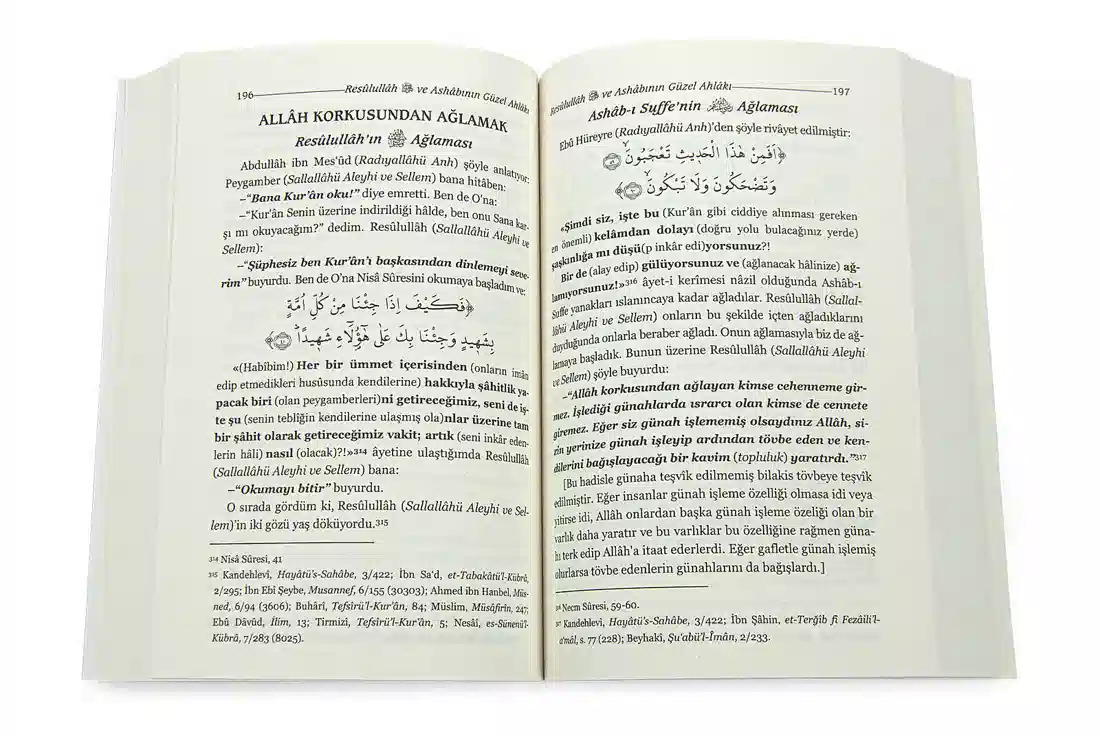 196
Resûlullâh ﷺ ve Ashâbının Güzel Ahlâkı
ALLÂH KORKUSUNDAN AĞLAMAK
Resûlullâh'ın ﷺ Ağlaması
Abdullâh ibn Mes'ûd (Radıyallâhü Anh) şöyle anlatıyor:
Peygamber (Sallallâhü Aleyhi ve Sellem) bana hitâben:
–“Bana Kur'ân oku!” diye emretti. Ben de O'na:
–“Kur'ân Senin üzerine indirildiği hâlde, ben onu Sana kar-
şı mı okuyacağım?” dedim. Resûlullâh (Sallallâhü Aleyhi ve
Sellem):
–“Şüphesiz ben Kur'ân'ı başkasından dinlemeyi seve-
rim” buyurdu. Ben de O'na Nisâ Sûresini okumaya başladım ve:
﴿فَكَيْفَ اِذَا جِئْنَا مِنْ كُلِّ اُمَّةٍ
بِشَه۪يدٍ وَجِئْنَا بِكَ عَلٰى هٰٓؤُ۬لَٓاءِ شَه۪يدًاۜ ﴿٤١﴾﴾
«(Habîbim!) Her bir ümmet içerisinden (onların imân
edip etmedikleri husûsunda kendilerine) hakkıyla şâhitlik ya-
pacak biri (olan peygamberleri)ni getireceğimiz, seni de iş-
te şu (senin tebliğin kendilerine ulaşmış ola)nlar üzerine tam
bir şâhit olarak getireceğimiz vakit; artık (seni inkâr eden-
lerin hâli) nasıl (olacak)?!»³¹⁴ âyetine ulaştığımda Resûlullâh
(Sallallâhü Aleyhi ve Sellem) bana:
–“Okumayı bitir” buyurdu.
O sırada gördüm ki, Resûlullâh (Sallallâhü Aleyhi ve Sel-
lem)'in iki gözü yaş döküyordu.³¹⁵
³¹⁴ Nisâ Sûresi, 41
³¹⁵ Kandehlevî, Hayâtü's-Sahâbe, 3/422; İbn Sa'd, et-Tabakâtü'l-Kübrâ,
2/295; İbn Ebî Şeybe, Musannef, 6/155 (30303); Ahmed ibn Hanbel, Müs-
ned, 6/94 (3606); Buhârî, Tefsîrü'l-Kur'ân, 84; Müslim, Müsâfirîn, 247;
Ebû Dâvûd, İlim, 13; Tirmizî, Tefsîrü'l-Kur'ân, 5; Nesâî, es-Sünenü'l-
Kübrâ, 7/283 (8025).
Resûlullâh ﷺ ve Ashâbının Güzel Ahlâkı
197
Ashâb-ı Suffe'nin Ağlaması
Ebû Hüreyre (Radıyallâhü Anh)'den şöyle rivâyet edilmiştir:
﴿اَفَمِنْ هٰذَا الْحَد۪يثِ تَعْجَبُونَۙ ﴿٥٩﴾
وَتَضْحَكُونَ وَلَا تَبْكُونَۙ ﴿٦٠﴾﴾
«Şimdi siz, işte bu (Kur'ân gibi ciddiye alınması gereken
en önemli) kelâmdan dolayı (doğru yolu bulacağınız yerde)
şaşkınlığa mı düşü(p inkâr edi)yorsunuz?!
Bir de (alay edip) gülüyorsunuz ve (ağlanacak hâlinize) ağ-
lamıyorsunuz!»³¹⁶ âyet-i kerîmesi nâzil olduğunda Ashâb-ı
Suffe yanakları ıslanıncaya kadar ağladılar. Resûlullâh (Sallal-
lâhü Aleyhi ve Sellem) onların bu şekilde içten ağladıklarını
duyduğunda onlarla beraber ağladı. Onun ağlamasıyla biz de ağ-
lamaya başladık. Bunun üzerine Resûlullâh (Sallallâhü Aleyhi
ve Sellem) şöyle buyurdu:
–“Allâh korkusundan ağlayan kimse cehenneme gir-
mez. İşlediği günahlarda ısrarcı olan kimse de cennete
giremez. Eğer siz günah işlememiş olsaydınız Allâh, si-
zin yerinize günah işleyip ardından tövbe eden ve ken-
dilerini bağışlayacağı bir kavim (topluluk) yaratırdı.”³¹⁷
[Bu hadisle günaha teşvîk edilmemiş bilakis tövbeye teşvîk
edilmiştir. Eğer insanlar günah işleme özelliği olmasa idi veya
yitirse idi, Allâh onlardan başka günah işleme özeliği olan bir
varlık daha yaratır ve bu varlıklar bu özelliğine rağmen güna-
hı terk edip Allâh'a itaat ederlerdi. Eğer gafletle günah işlemiş
olurlarsa tövbe edenlerin günahlarını da bağışlardı.]
³¹⁶ Necm Sûresi, 59-60.
³¹⁷ Kandehlevî, Hayâtü's-Sahâbe, 3/422; İbn Şâhin, et-Terğîb fî Fezâili'l-
a'mâl, s. 77 (228); Beyhakî, Şu'abü'l-Îmân, 2/233.